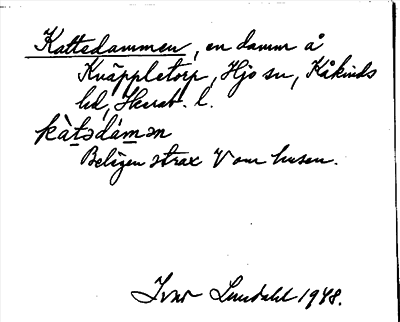 Kattedammen, en damm å
Kväppletorp, Hjo sn, Kåkinds
hd, Skarab. l.
kàtədámən
Belägen strax V om husen.
Ivar Lundahl 1948.